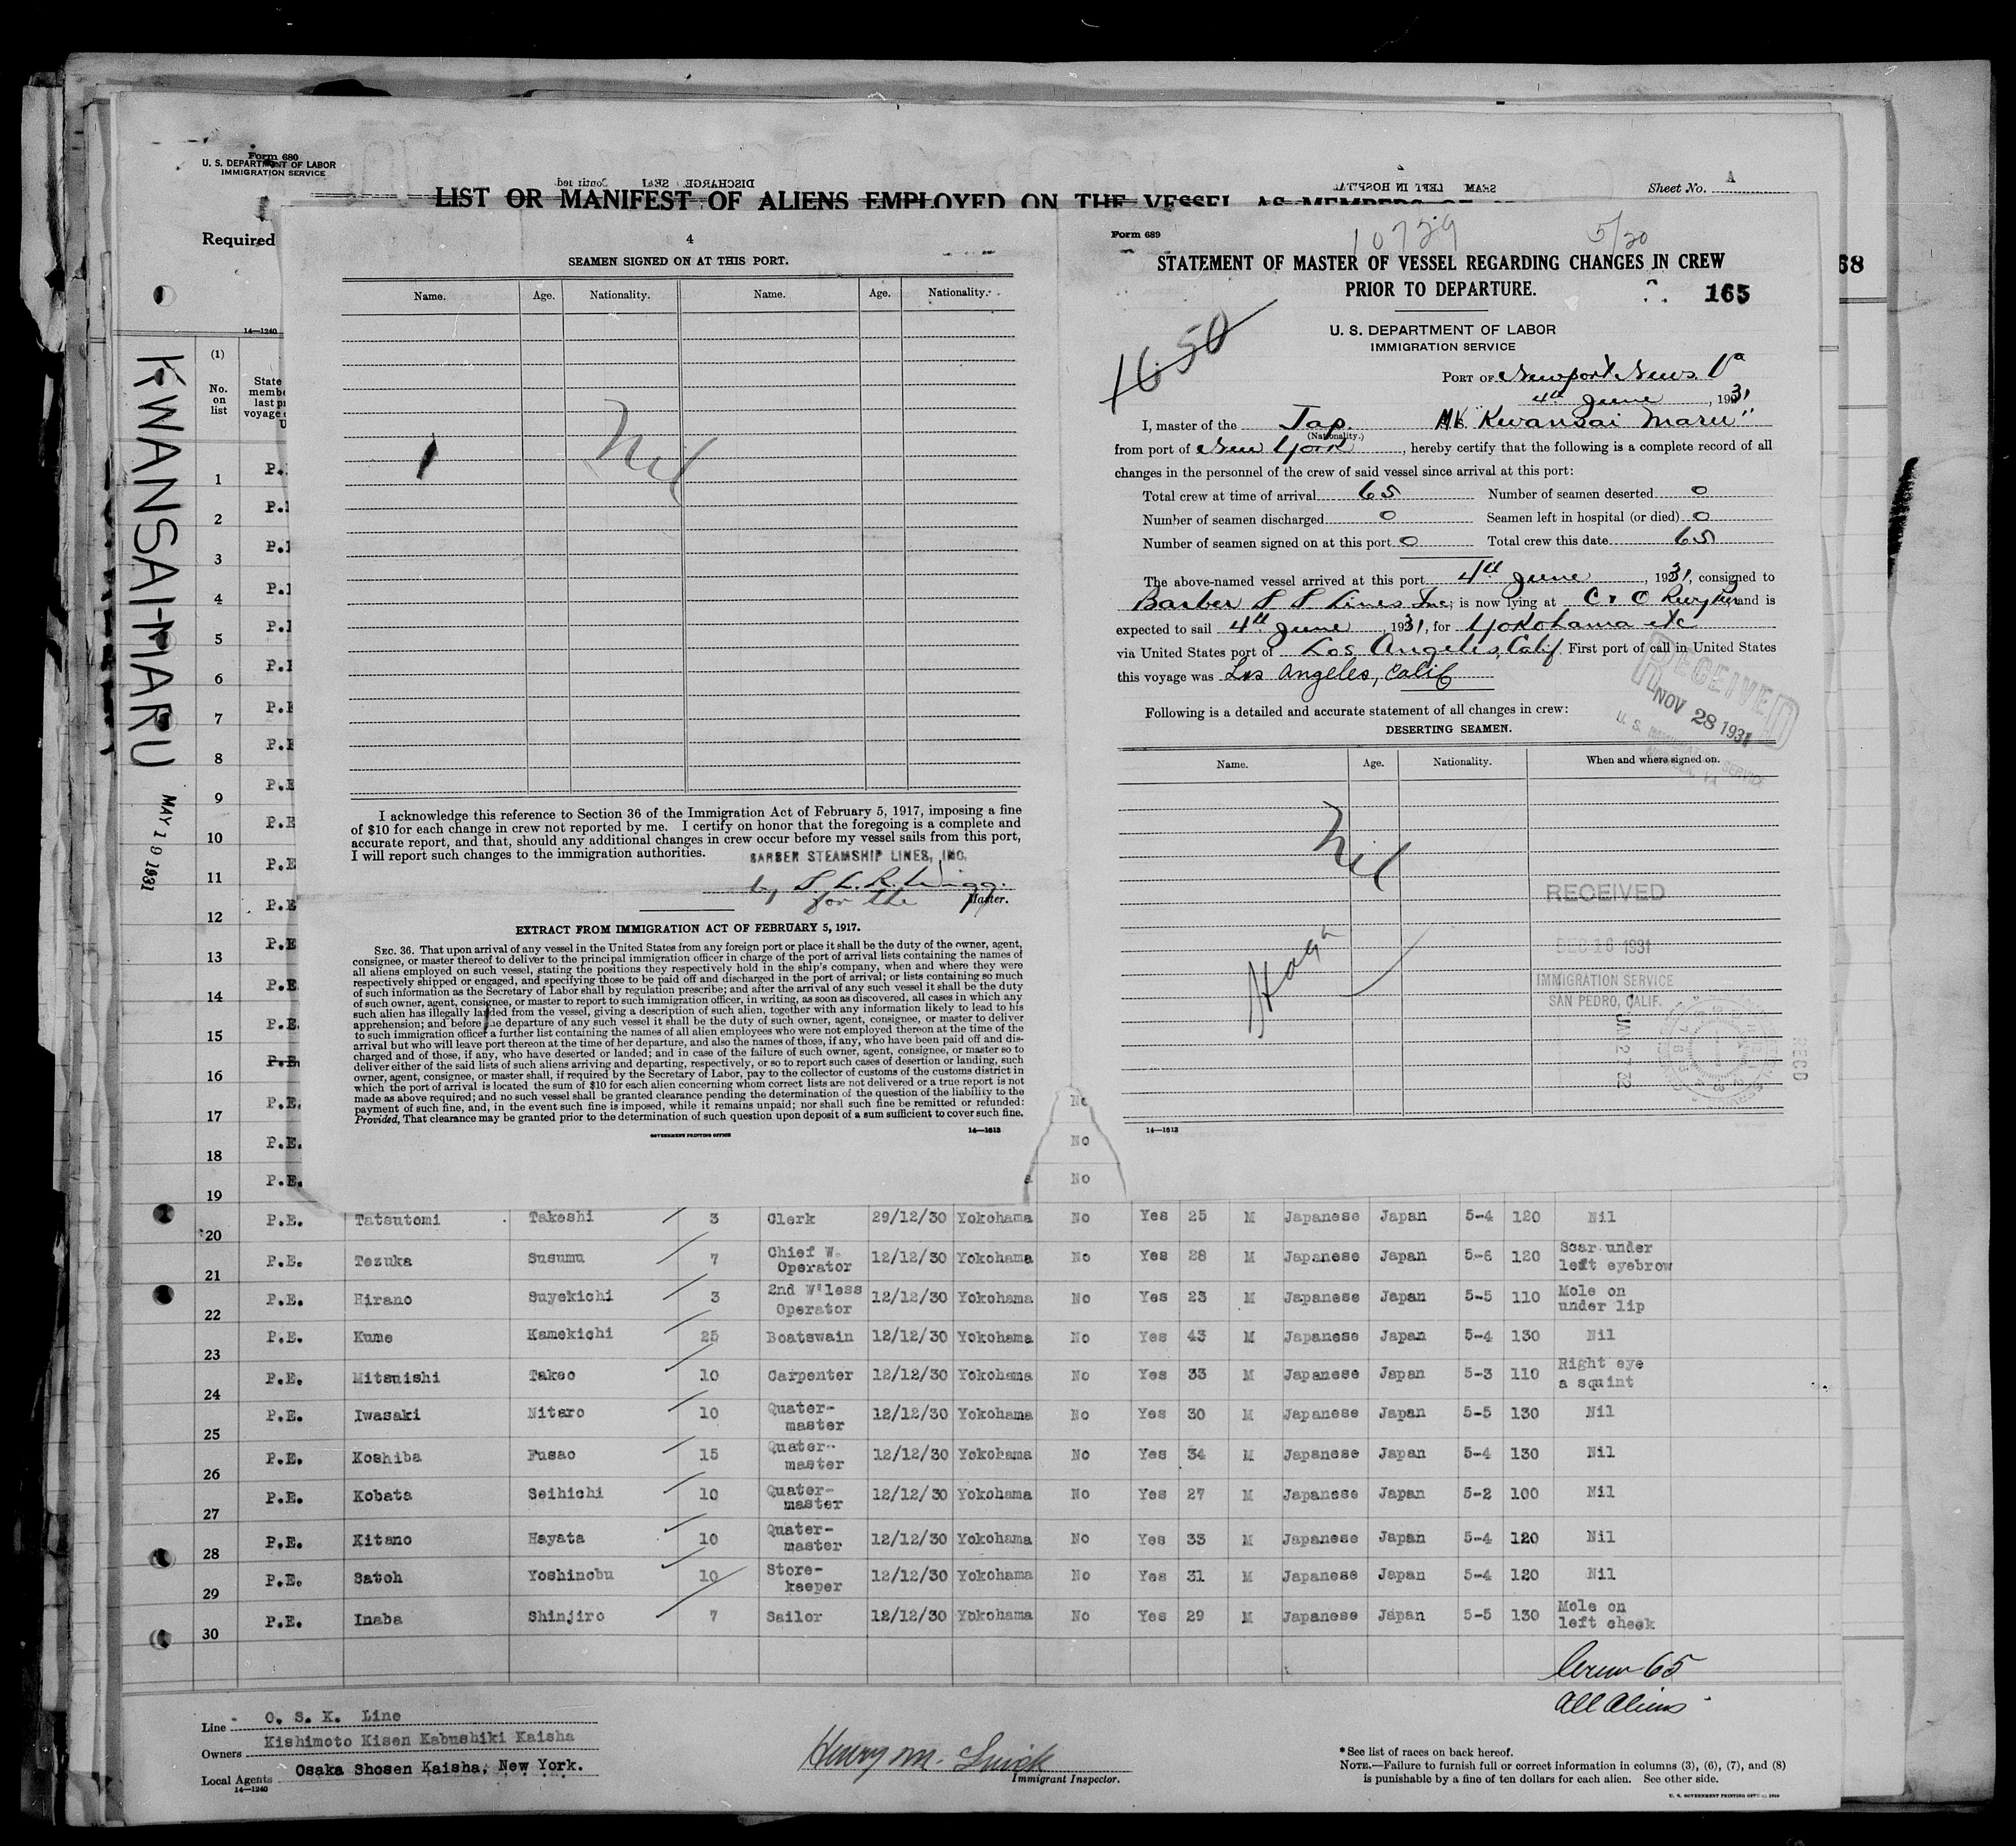 Form 680
U. S. DEPARTMENT OF LABOR
IMMIGRATION SERVICE
LIST OR MANIFEST OF ALIENS EMPLOYED ON THE VESSEL AS MEMBERS OF
Sheet No. A
Required
14—1240
68
KWANSAI-MARU
MAY 19 1931
(1)
No.
on
list
State
membe
last p
voyage
4
SEAMEN SIGNED ON AT THIS PORT.
Name. Age. Nationality. Name. Age. Nationality.
Nil
I acknowledge this reference to Section 36 of the Immigration Act of February 5, 1917, imposing a fine
of $10 for each change in crew not reported by me. I certify on honor that the foregoing is a complete and
accurate report, and that, should any additional changes in crew occur before my vessel sails from this port,
I will report such changes to the immigration authorities.
BARBER STEAMSHIP LINES, INC.
by
for the Master.
EXTRACT FROM IMMIGRATION ACT OF FEBRUARY 5, 1917.
SEC. 36. That upon arrival of any vessel in the United States from any foreign port or place it shall be the duty of the owner, agent,
consignee, or master thereof to deliver to the principal immigration officer in charge of the port of arrival lists containing the names of
all aliens employed on such vessel, stating the positions they respectively hold in the ship's company, when and where they were
respectively shipped or engaged, and specifying those to be paid off and discharged in the port of arrival; or lists containing so much
of such information as the Secretary of Labor shall by regulation prescribe; and after the arrival of any such vessel it shall be the duty
of such owner, agent, consignee, or master to report to such immigration officer, in writing, as soon as discovered, all cases in which any
such alien has illegally landed from the vessel, giving a description of such alien, together with any information likely to lead to his
apprehension; and before the departure of any such vessel it shall be the duty of such owner, agent, consignee, or master to deliver
to such immigration officer a further list containing the names of all alien employees who were not employed thereon at the time of the
arrival but who will leave port thereon at the time of her departure, and also the names of those, if any, who have been paid off and dis-
charged and of those, if any, who have deserted or landed; and in case of the failure of such owner, agent, consignee, or master so to
deliver either of the said lists of such aliens arriving and departing, respectively, or so to report such cases of desertion or landing, such
owner, agent, consignee, or master shall, if required by the Secretary of Labor, pay to the collector of customs of the customs district in
which the port of arrival is located the sum of $10 for each alien concerning whom correct lists are not delivered or a true report is not
made as above required; and no such vessel shall be granted clearance pending the determination of the question of the liability to the
payment of such fine, and, in the event such fine is imposed, while it remains unpaid; nor shall such fine be remitted or refunded:
Provided, That clearance may be granted prior to the determination of such question upon deposit of a sum sufficient to cover such fine.
GOVERNMENT PRINTING OFFICE 14—1613
Form 689
10729 5/20
STATEMENT OF MASTER OF VESSEL REGARDING CHANGES IN CREW
PRIOR TO DEPARTURE.
165
1650
U. S. DEPARTMENT OF LABOR
IMMIGRATION SERVICE
PORT OF Newport News Va
4th June, 1931
I, master of the Jap. M.V. Kwansai Maru"
(Nationality.)
from port of New York, hereby certify that the following is a complete record of all
changes in the personnel of the crew of said vessel since arrival at this port:
Total crew at time of arrival 65 Number of seamen deserted 0
Number of seamen discharged 0 Seamen left in hospital (or died) 0
Number of seamen signed on at this port 0 Total crew this date 65
The above-named vessel arrived at this port 4th June, 1931, consigned to
Barber S S Lines Inc; is now lying at C & O and is
expected to sail 4th June, 1931, for Yokohama etc
via United States port of Los Angeles, Calif. First port of call in United States
this voyage was Los Angeles, Calif
Following is a detailed and accurate statement of all changes in crew:
DESERTING SEAMEN.
Name. Age. Nationality. When and where signed on.
Nil
RECEIVED
NOV 28 1931
U. S. IMMIGRATION SERVICE
NORFOLK, VA
RECEIVED
DEC 16 1931
IMMIGRATION SERVICE
SAN PEDRO, CALIF.
JAN 2 '32
REC'D
14—1613
1 P.
2 P.
3 P.
4 P.
5 P.
6 P.
7 P.
8 P.
9 P.E
10 P.E
11 P.E
12 P.E
13 P.E
14 P.E
15 P.E.
16 P.E.
17 P.E. No
18 P.E. No
19 P.E. No
20 P.E. Tatsutomi Takeshi 3 Clerk 29/12/30 Yokohama No Yes 25 M Japanese Japan 5-4 120 Nil
21 P.E. Tezuka Susumu 7 Chief W. Operator 12/12/30 Yokohama No Yes 28 M Japanese Japan 5-6 120 Scar under left eyebrow
22 P.E. Hirano Suyekichi 3 2nd W'less Operator 12/12/30 Yokohama No Yes 23 M Japanese Japan 5-5 110 Mole on under lip
23 P.E. Kume Kamekichi 25 Boatswain 12/12/30 Yokohama No Yes 43 M Japanese Japan 5-4 130 Nil
24 P.E. Mitsuishi Takeo 10 Carpenter 12/12/30 Yokohama No Yes 33 M Japanese Japan 5-3 110 Right eye a squint
25 P.E. Iwasaki Nitaro 10 Quater-master 12/12/30 Yokohama No Yes 30 M Japanese Japan 5-5 130 Nil
26 P.E. Koshiba Fusao 15 Quater-master 12/12/30 Yokohama No Yes 34 M Japanese Japan 5-4 130 Nil
27 P.E. Kobata Seihichi 10 Quater-master 12/12/30 Yokohama No Yes 27 M Japanese Japan 5-2 100 Nil
28 P.E. Kitano Hayata 10 Quater-master 12/12/30 Yokohama No Yes 33 M Japanese Japan 5-4 120 Nil
29 P.E. Satoh Yoshinobu 10 Store-keeper 12/12/30 Yokohama No Yes 31 M Japanese Japan 5-4 120 Nil
30 P.E. Inaba Shinjiro 7 Sailor 12/12/30 Yokohama No Yes 29 M Japanese Japan 5-5 130 Mole on left cheek
Crew 65
All Aliens
Line O. S. K. Line
Owners Kishimoto Kisen Kabushiki Kaisha
Local Agents Osaka Shosen Kaisha, New York.
14—1240
Henry M.
Immigrant Inspector.
*See list of races on back hereof.
NOTE.—Failure to furnish full or correct information in columns (3), (6), (7), and (8)
is punishable by a fine of ten dollars for each alien. See other side.
U. S. GOVERNMENT PRINTING OFFICE